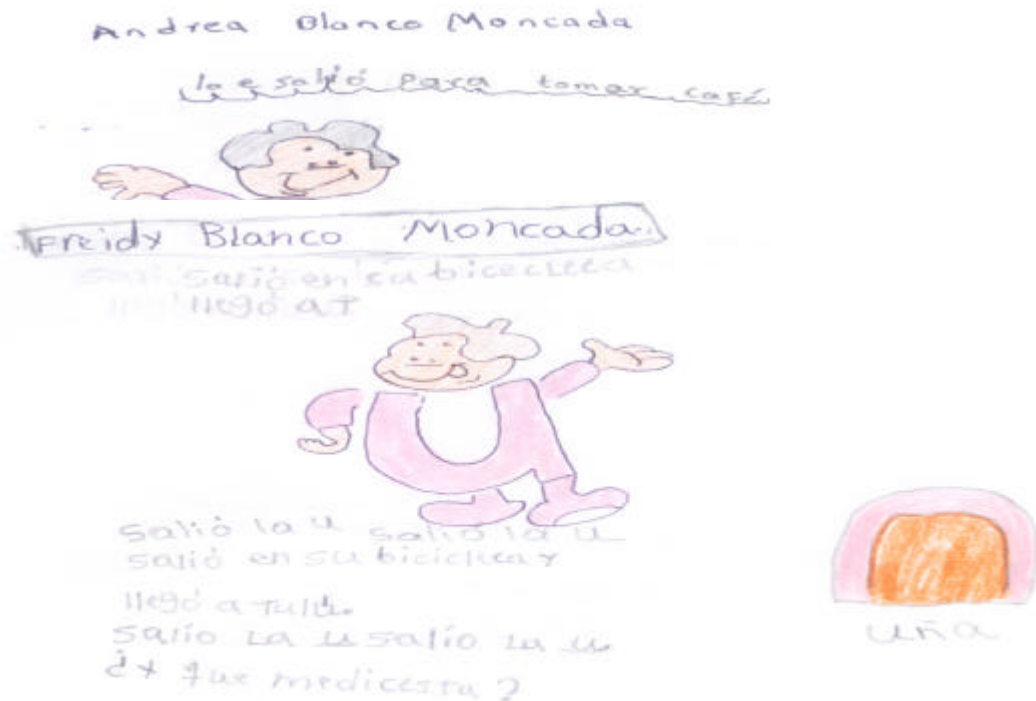 Andrea Blanco Moncada
la e salió para tomar café
Freidy Blanco Moncada
salió en su
llegó a T
salió la u salió la u
salió en su bicicleta y
llegó a tulú.
salio La u salio La u
¿y que me
uña